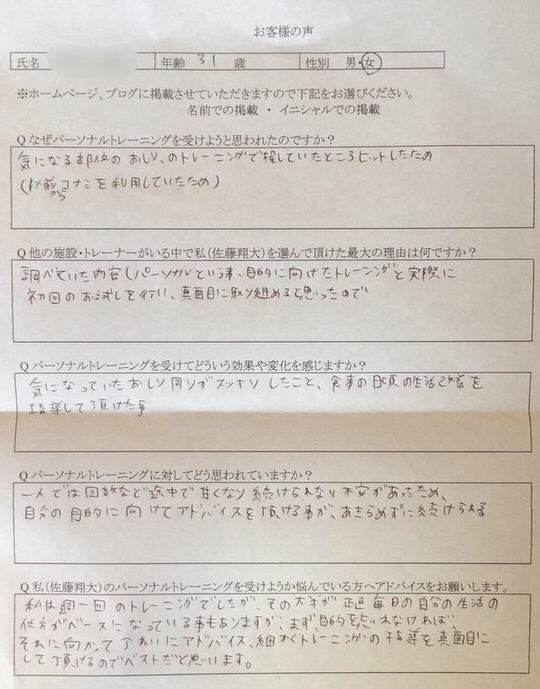 お客様の声
氏名 年齢 31 歳 性別 男・女
※ホームページ、ブログに掲載させていただきますので下記をお選びください。
名前での掲載 ・ イニシャルでの掲載
Q なぜパーソナルトレーニングを受けようと思われたのですか？
気になる部位のおしりのトレーニングで探していたところヒットしたため
(以前からコナミを利用していたため)
Q 他の施設・トレーナーがいる中で私(佐藤翔大)を選んで頂けた最大の理由は何ですか？
調べていた内容(パーソナルという事、目的に向けたトレーニング)と実際に
初回のおためしを行い、真面目に取り組めると思ったので
Q パーソナルトレーニングを受けてどういう効果や変化を感じますか？
気になっていたおしり周りがスッキリしたこと、食事の日頃の生活改善を
指導して頂けた事
Q パーソナルトレーニングに対してどう思われていますか？
一人では回数など途中で甘くなり続けられない不安があったため、
自分の目的に向けてアドバイスを頂ける事が、あきらめずに続けられる
Q 私(佐藤翔大)のパーソナルトレーニングを受けようか悩んでいる方へアドバイスをお願いします。
私は週一回のトレーニングでしたが、その大半が正直毎日の自分の生活の
仕方がベースになっている事もありますが、まず目的を忘れなければ、
それに向かって丁ねいにアドバイス、細かくトレーニングの指導を真面目に
して頂けるのでベストだと思います。